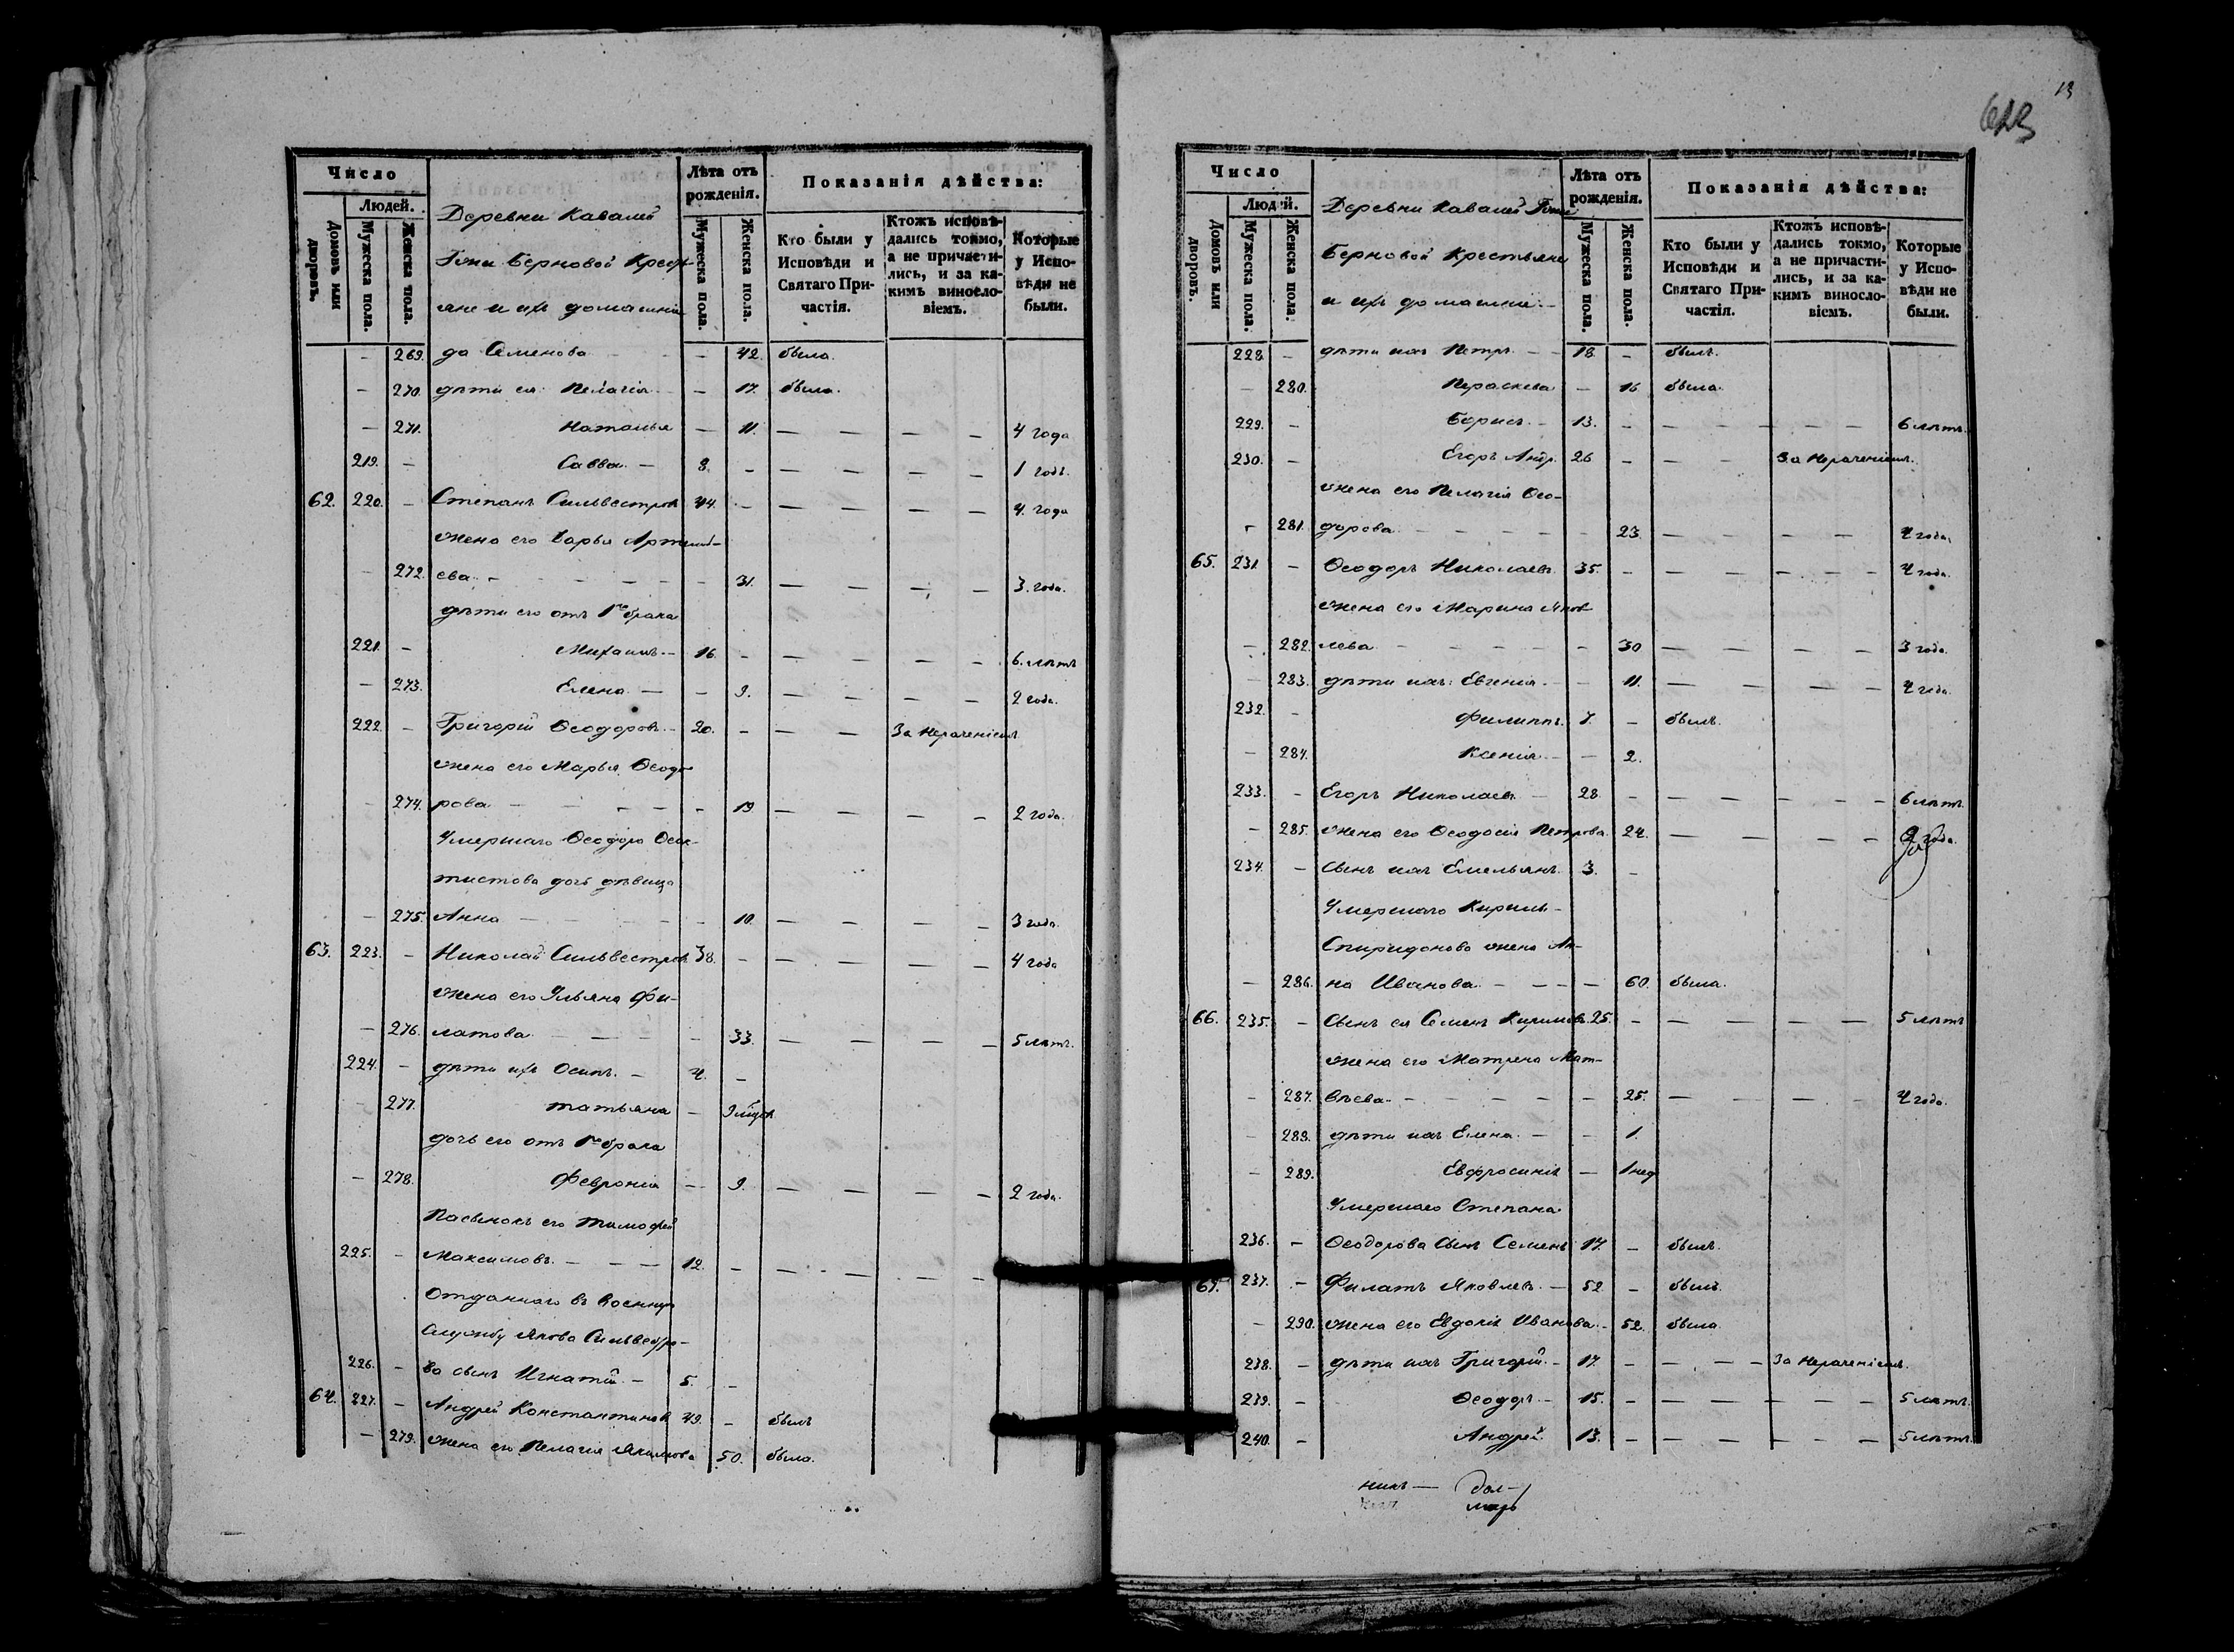 Число
Людей.
Домовъ или дворовъ.
Мужеска пола.
Женска пола.
Деревни Кавалей
Гжи Берновой Кресть-
яне и ихъ домашніи
Лѣта отъ рожденія.
Мужеска пола.
Женска пола.
Показанія дѣйства:
Кто были у Исповѣди и Святаго Причастія.
Ктожъ исповѣдались токмо, а не причастились, и за какимъ винословіемъ.
Которые у Исповѣди не были.
— 269. да Семенова — 42. была.
— 270. дѣти ея Пелагія — 17. была.
— 271. Наталья — 11. — — — — 4 года
219. — Савва. — 8. — — — — — 1 годъ.
62. 220. — Степанъ Сильвестровъ 44. — — — — — 4. года
жена его Дарья Артемь-
— 272. ева — — 31. — — — — 3. года.
дѣти его отъ 1го брака
221. — Михаилъ — 16. — — — — — 6. лѣтъ
— 273. Елена — — 9. — — — — 2 года.
222. — Григорій Ѳеодоровъ — 20. — — — За нераченіемъ
жена его Марья Ѳеодо-
— 274. рова — — 19 — — — — 2 года.
Умершаго Ѳеодора Ѳеок-
тистова дочь дѣвица
— 275. Анна — — 10. — — — — 3 года.
63. 223. — Николай Сильвестровъ 38. — — — — — 4 года
жена его Ульяна Фи-
— 276. латова — — 33. — — — — 5 лѣтъ.
224. — дѣти ихъ Осипъ. — 4. —
— 277. Татьяна — 9 мцов
дочь его отъ 1го брака
— 278. Февронія — 9. — — — — 2 года.
Пасынокъ его Тимофей
225. — Максимовъ. — — — 12. — — — — —
Отданнаго въ военную
Службу Якова Сильвестро-
226. — ва сынъ Игнатій. — 5. —
64. 227. — Андрей Константиновъ 49. — былъ
— 279. жена его Пелагія Якимова 50. была.
13
623
Число
Людей.
Домовъ или дворовъ.
Мужеска пола.
Женска пола.
Деревни Кавалей Гжи
Берновой Крестьяне
и ихъ домашніи
Лѣта отъ рожденія.
Мужеска пола.
Женска пола.
Показанія дѣйства:
Кто были у Исповѣди и Святаго Причастія.
Ктожъ исповѣдались токмо, а не причастились, и за какимъ винословіемъ.
Которые у Исповѣди не были.
228. — дѣти ихъ Петръ — — 18. — былъ.
— 280. Параскева — 16 была.
229. — Борисъ. — 13. — — — — — 6 лѣтъ.
230. — Егоръ Андр. 26 — — — За нераченіемъ.
жена его Пелагія Ѳео-
— 281. дорова — — 23. — — — — 4 года.
65. 231. — Ѳеодоръ Николаевъ 35. — — — — — 4 года.
жена его Марина Яков-
— 282. лева — — 30 — — — — 3 года.
— 283. дѣти ихъ: Евгенія. — — 11. — — — — 4 года.
232. — Филиппъ. 7. — былъ.
— 284. Ксенія — — 2.
233. — Егоръ Николаевъ — 28 — — — — — 6 лѣтъ.
— 285. жена его Ѳеодосія Петрова. 24. — — — — 2 года.
234. — Сынъ ихъ Емельянъ. 3. —
Умершаго Кирилы
Спиридонова жена Ан-
— 286. на Иванова — — — 60. была.
66. 235. — Сынъ ея Семенъ Кириловъ. 25. — — — — — 5 лѣтъ
жена его Матрена Мат-
— 287. вѣева — — 25. — — — 4 года.
— 288. дѣти ихъ Елена. — — 1.
— 289. Евфросинія — 1 нед
Умершаго Степана
236. — Ѳеодорова Сынъ Семенъ 17. — былъ.
67. 237. — Филатъ Яковлевъ. — 52 — былъ.
— 290. жена его Евдокія Иванова — 52. была.
238. — дѣти ихъ Григорій. — 17. — — — — За нераченіемъ.
239. — Ѳеодоръ. — 15. — — — — — 5 лѣтъ.
240. — Андрей. 13. — — — — — 5 лѣтъ.
никъ —